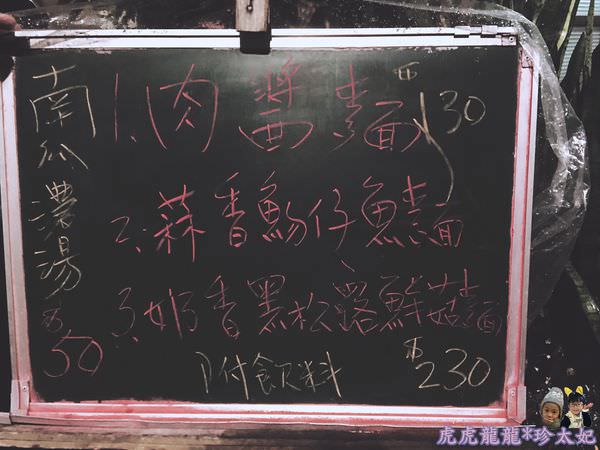 南瓜濃湯 $50
1.肉醬麵 $130
2.蒜香魩仔魚麵
3.奶香黑松露鮮菇麵
附飲料 $230
虎虎龍龍*珍太妃